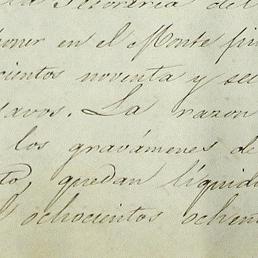 la Tesorería del
poner en el Monte pi
cientos noventa y se
tavos. La razon
los gravámenes de
to, quedan líquid
ochocientos ochen